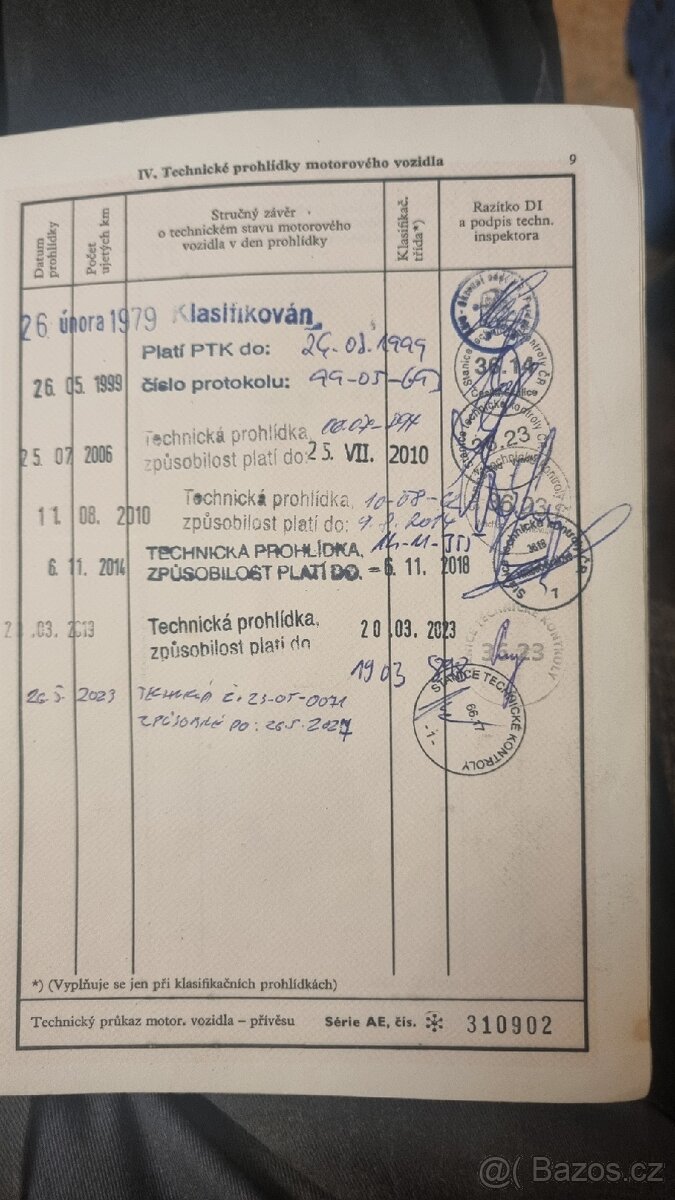 IV. Technické prohlídky motorového vozidla 9
Datum prohlídky
Počet ujetých km
Stručný závěr
o technickém stavu motorového
vozidla v den prohlídky
Klasifikač. třída*)
Razítko DI
a podpis techn.
inspektora
26. února 1979 Klasifikován
Platí PTK do:
26. 05. 1999 číslo protokolu: 99-05-
36.14
Technická prohlídka,
25. 07 2006 způsobilost platí do: 25. VII. 2010
36.23
Technická prohlídka,
11. 08. 2010 způsobilost platí do: 9.8.2014
TECHNICKÁ PROHLÍDKA,
6. 11. 2014 ZPŮSOBILOST PLATÍ DO. - 6. 11. 2018
Technická prohlídka,
.03. způsobilost platí do 20.03.2023
36.23
1903
26.5. 2023 TECHNICKÁ Č. 23-05-0071
ZPŮSOBILÉ DO: 26.5.2027
STANICE TECHNICKÉ KONTROLY
66.17
-1-
*) (Vyplňuje se jen při klasifikačních prohlídkách)
Technický průkaz motor. vozidla – přívěsu Série AE, čís. 310902
@( Bazos.cz